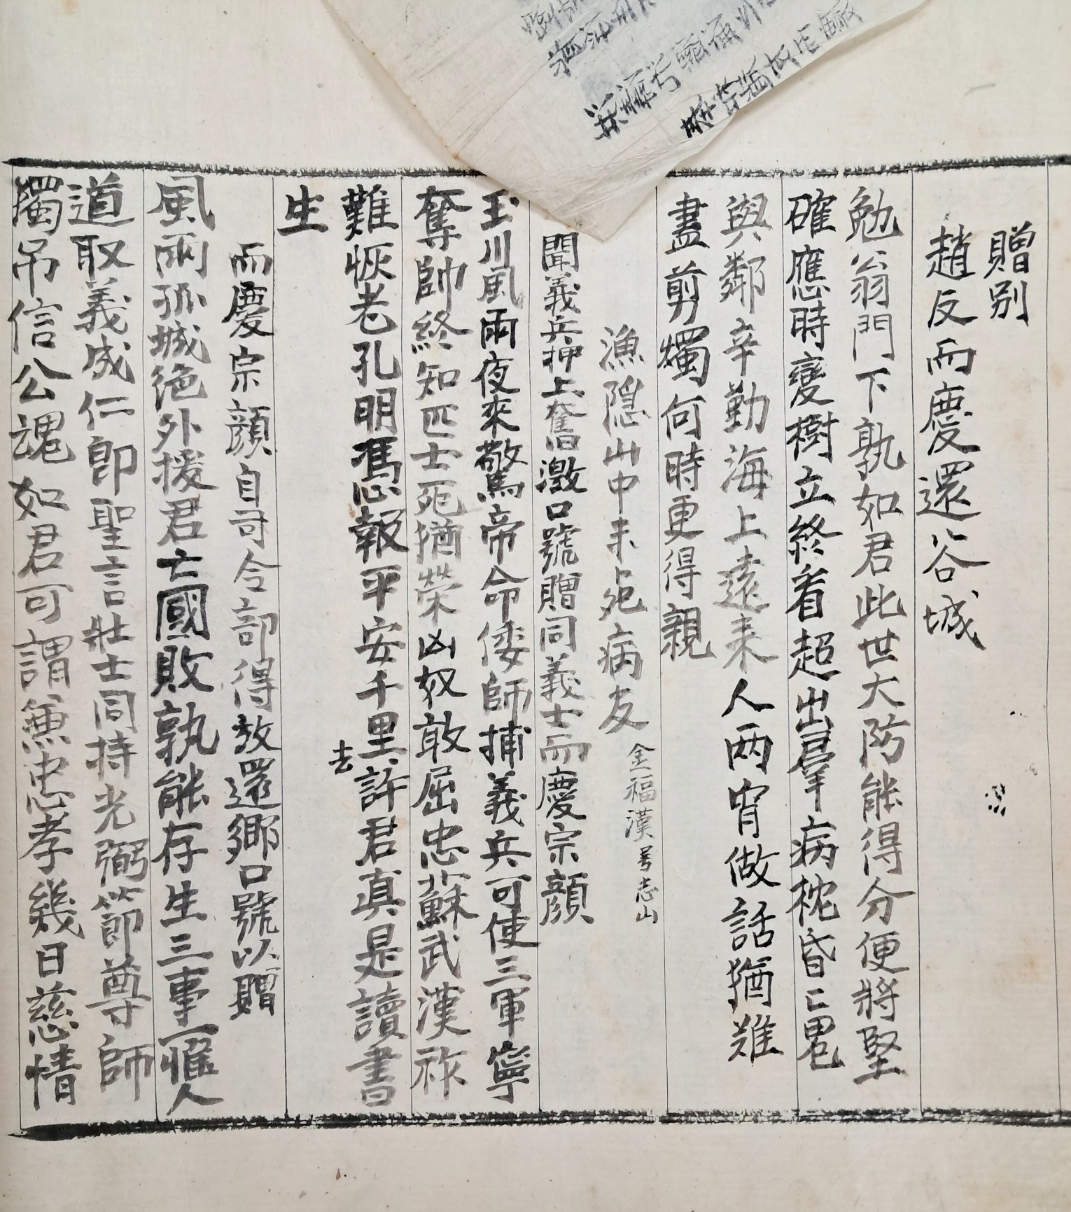 贈别
趙友而慶還谷城
勉翁門下孰如君此世大防能得分便將堅
確應時變樹立終看超出羣病枕昏昏罷
與鄰辛勤海上遠来人兩宵做話猶難
盡剪燭何時更得親
漁隱山中未死病友
金福漢号志山
聞義兵押上奮激口號贈同義士而慶宗顔
玉川風雨夜來驚帝命倭師捕義兵可使三軍寧
奪帥終知匹士死猶榮凶奴敢屈忠蘇武漢祚
難恢老孔明馮報平安千里許君真是讀書
去
生
而慶宗顔自司令部得放還鄉口號以贈
風雨孤城絶外援君亡國敗孰能存生三事一惟人
道取義成仁卽聖言壯士同持光弼節尊師
獨吊信公魂如君可謂兼忠孝幾日慈情